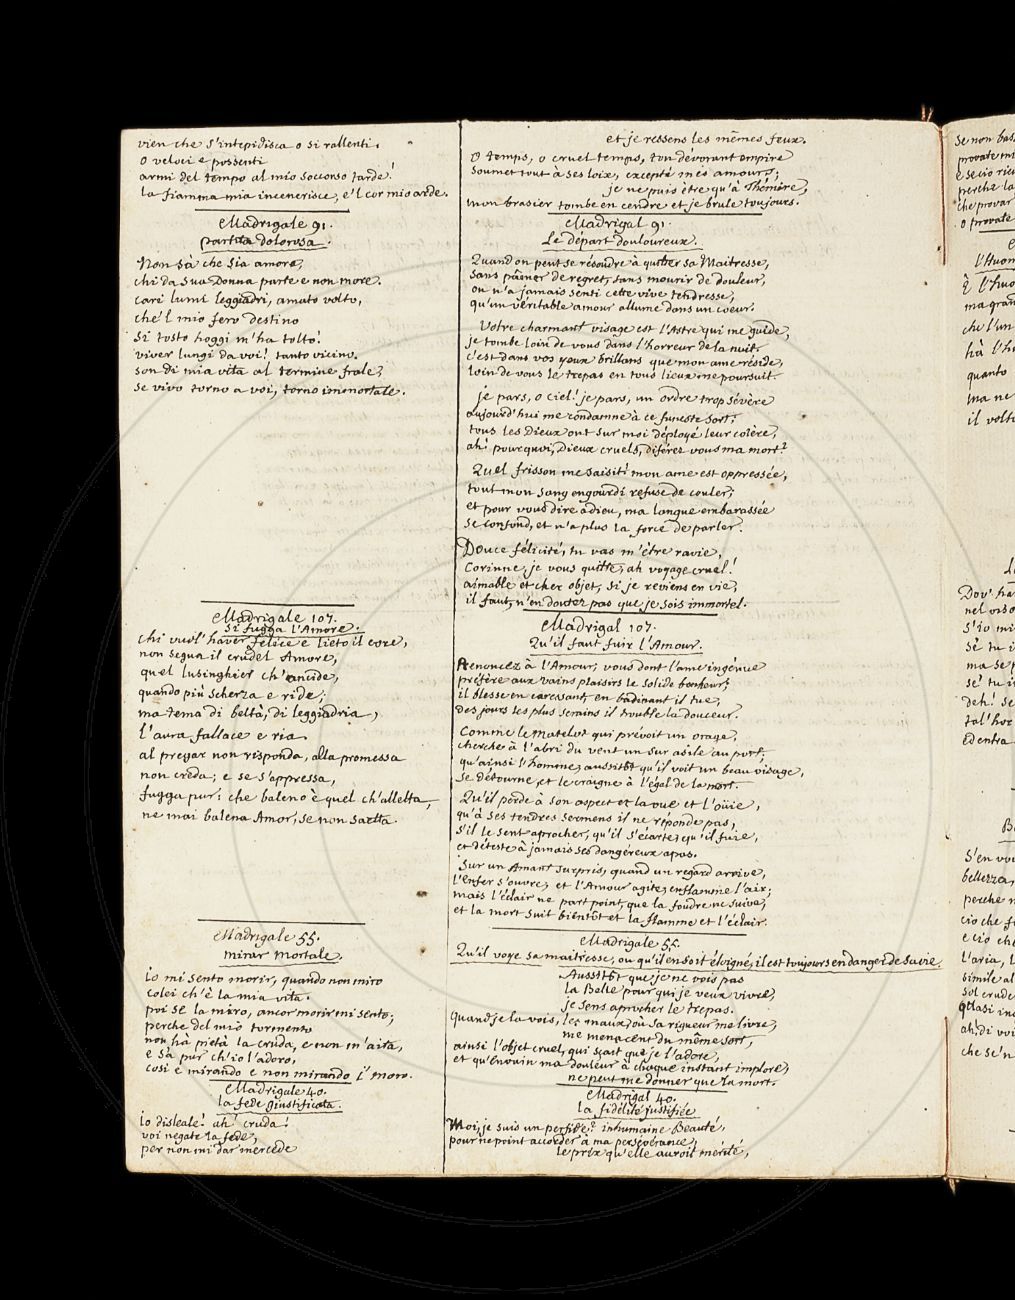 vien che s'intepidisca o si rallenti.
o veloci e possenti
armi del tempo al mio soccorso tarde!
la fiamma mia incenerisce, e'l cor mio arde.
Madrigale 91.
partita dolorosa.
Non sà che sia amore,
chi da sua Donna parte e non more.
cari lumi leggiadri, amato volto,
che'l mio fero destino
si tosto hoggi m'ha tolto!
viver lungi da voi! tanto vicino.
son di mia vita al termine frale,
se vivo torno a voi, torno immortale.
Madrigale 107.
si fugga l'Amore.
chi vuol' haver felice e lieto il core,
non segua il crudel Amore,
quel lusinghier ch'ancide,
quando più scherza e ride;
ma tema di beltà, di leggiadria,
l'aura fallace e ria.
al pregar non risponda, alla promessa
non creda; e se s'appressa,
fugga pur: che baleno è quel ch'alletta,
ne mai balena Amor, se non saetta.
Madrigale 55.
mirar mortale.
io mi sento morir, quando non miro
colei ch'è la mia vita.
poi se la miro, ancor morir mi sento;
perche del mio tormento
non hà pietà la cruda, e non m'aita,
e sà pur ch'io l'adoro,
cosi e mirando e non mirando i' moro.
Madrigale 40.
la fede giustificata.
io disleale! ah! cruda!
voi negate la fede,
per non mi dar mercede
et je ressens les mêmes feux.
O temps, o cruel temps, ton dévorant empire
soumet tout à ses loix, excepté mes amours;
je ne puis être qu'à Thémire,
mon brasier tombe en cendre et je brule toujours.
Madrigal 91.
Le départ douloureux.
Quand on peut se résoudre à quitter sa Maitresse,
sans pâmer de regret, sans mourir de douleur,
on n'a jamais senti cette vive tendresse,
qu'un véritable amour allume dans un coeur.
Votre charmant visage est l'Astre qui me guide,
je tombe loin de vous dans l'horreur de la nuit.
c'est dans vos yeux brillans que mon ame réside,
loin de vous le trepas en tous lieux me poursuit.
je pars, o ciel! je pars, un ordre trop sévère
aujourd'hui me condamne à ce funeste sort;
tous les Dieux ont sur moi déployé leur colère,
ah! pourquoi, Dieux cruels, diférez vous ma mort?
Quel frisson me saisit! mon ame est oppressée,
tout mon sang engourdi refuse de couler;
et pour vous dire adieu, ma langue embarassée
se confond, et n'a plus la force de parler.
Douce félicité, tu vas m'être ravie,
Corinne, je vous quitte, ah voyage cruel!
aimable et cher objet, si je reviens en vie,
il faut, n'en doutez pas que je sois immortel.
Madrigal 107.
Qu'il faut fuir l'Amour.
Renoncez à l'Amour, vous dont l'ame ingénue
préfère aux vains plaisirs le solide bonheur;
il blesse en caressant, en badinant il tue,
des jours les plus serains il trouble la douceur.
Comme le Matelot qui prévoit un orage,
cherche à l'abri du vent un sur asile au port;
qu'ainsi l'homme, aussitôt qu'il voit un beau visage,
se détourne, et le craigne à l'égal de la mort.
Qu'il perde à son aspect et la vue et l'oüie,
qu'à ses tendres sermens il ne réponde pas,
s'il le sent aprocher, qu'il s'écarte, qu'il fuie,
et déteste à jamais ses dangereux apas.
Sur un Amant surpris, quand un regard arrive,
l'Enfer s'ouvre, et l'Amour agite, enflamme l'air;
mais l'éclair ne part point, que la foudre ne suive,
et la mort suit bientôt et la flamme et l'éclair.
Madrigale 55.
Qu'il voye sa maitresse, ou qu'il en soit éloigné, il est toujours en danger de sa vie.
Aussitôt que je ne vois pas
la Belle pour qui je veux vivre,
je sens aprocher le trepas.
Quand je la vois, les maux, où sa rigueur me livre,
me menacent du même sort,
ainsi l'objet cruel, qui sçait que je l'adore,
et qu'en vain ma douleur à chaque instant implore,
ne peut me donner que la mort.
Madrigal 40.
la fidélité justifiée
Moi, je suis un perfide? inhumaine Beauté,
pour ne point accorder à ma persévérance,
le prix qu'elle auroit mérité,